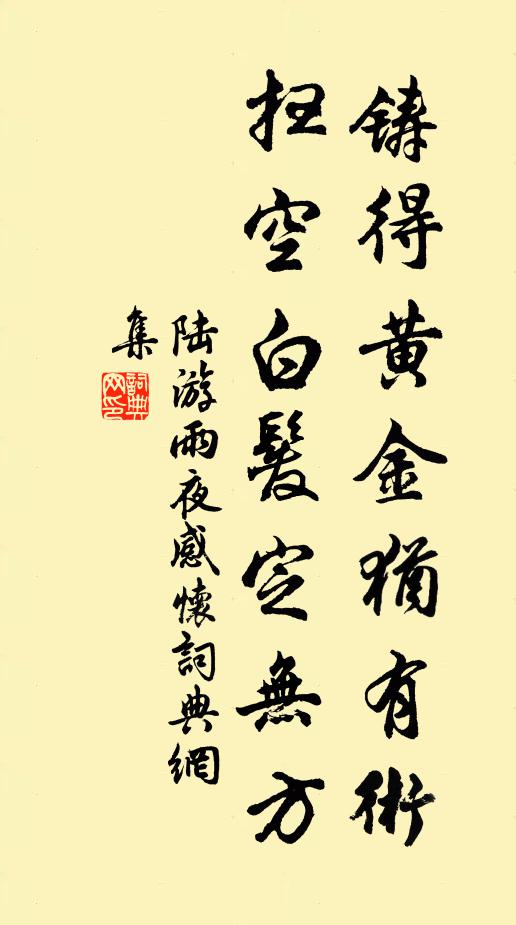 鑄得黄金猶有術
扭空白髮定無方
陸游雨夜感懷詞典網
集
詞典
网印